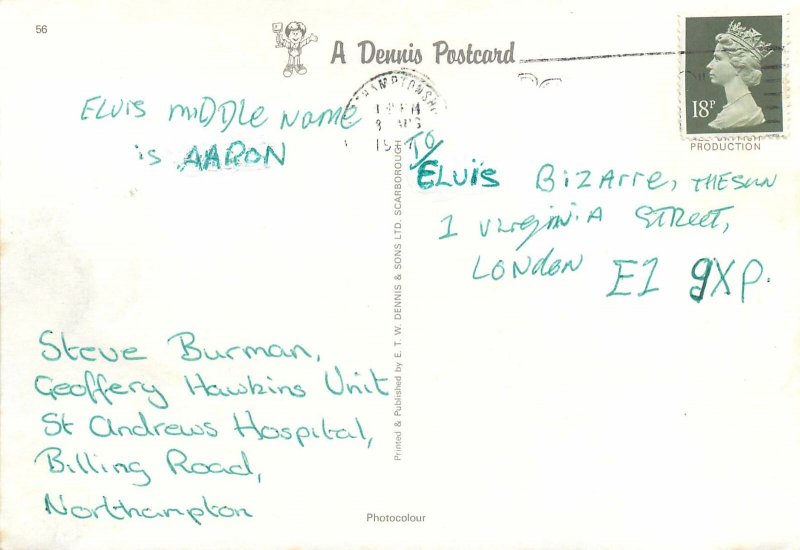 56
A Dennis Postcard
18P
PRODUCTION
ELVIS MIDDLE NAME
is AARON
TO/
ELVIS BIZARRE, THE SUN
1 VIRGINIA STREET,
LONDON E1 9XP.
Steve Burman,
Geoffery Hawkins Unit
St Andrews Hospital,
Billing Road,
Northampton
Printed & Published by E. T. W. DENNIS & SONS LTD. SCARBOROUGH
Photocolour